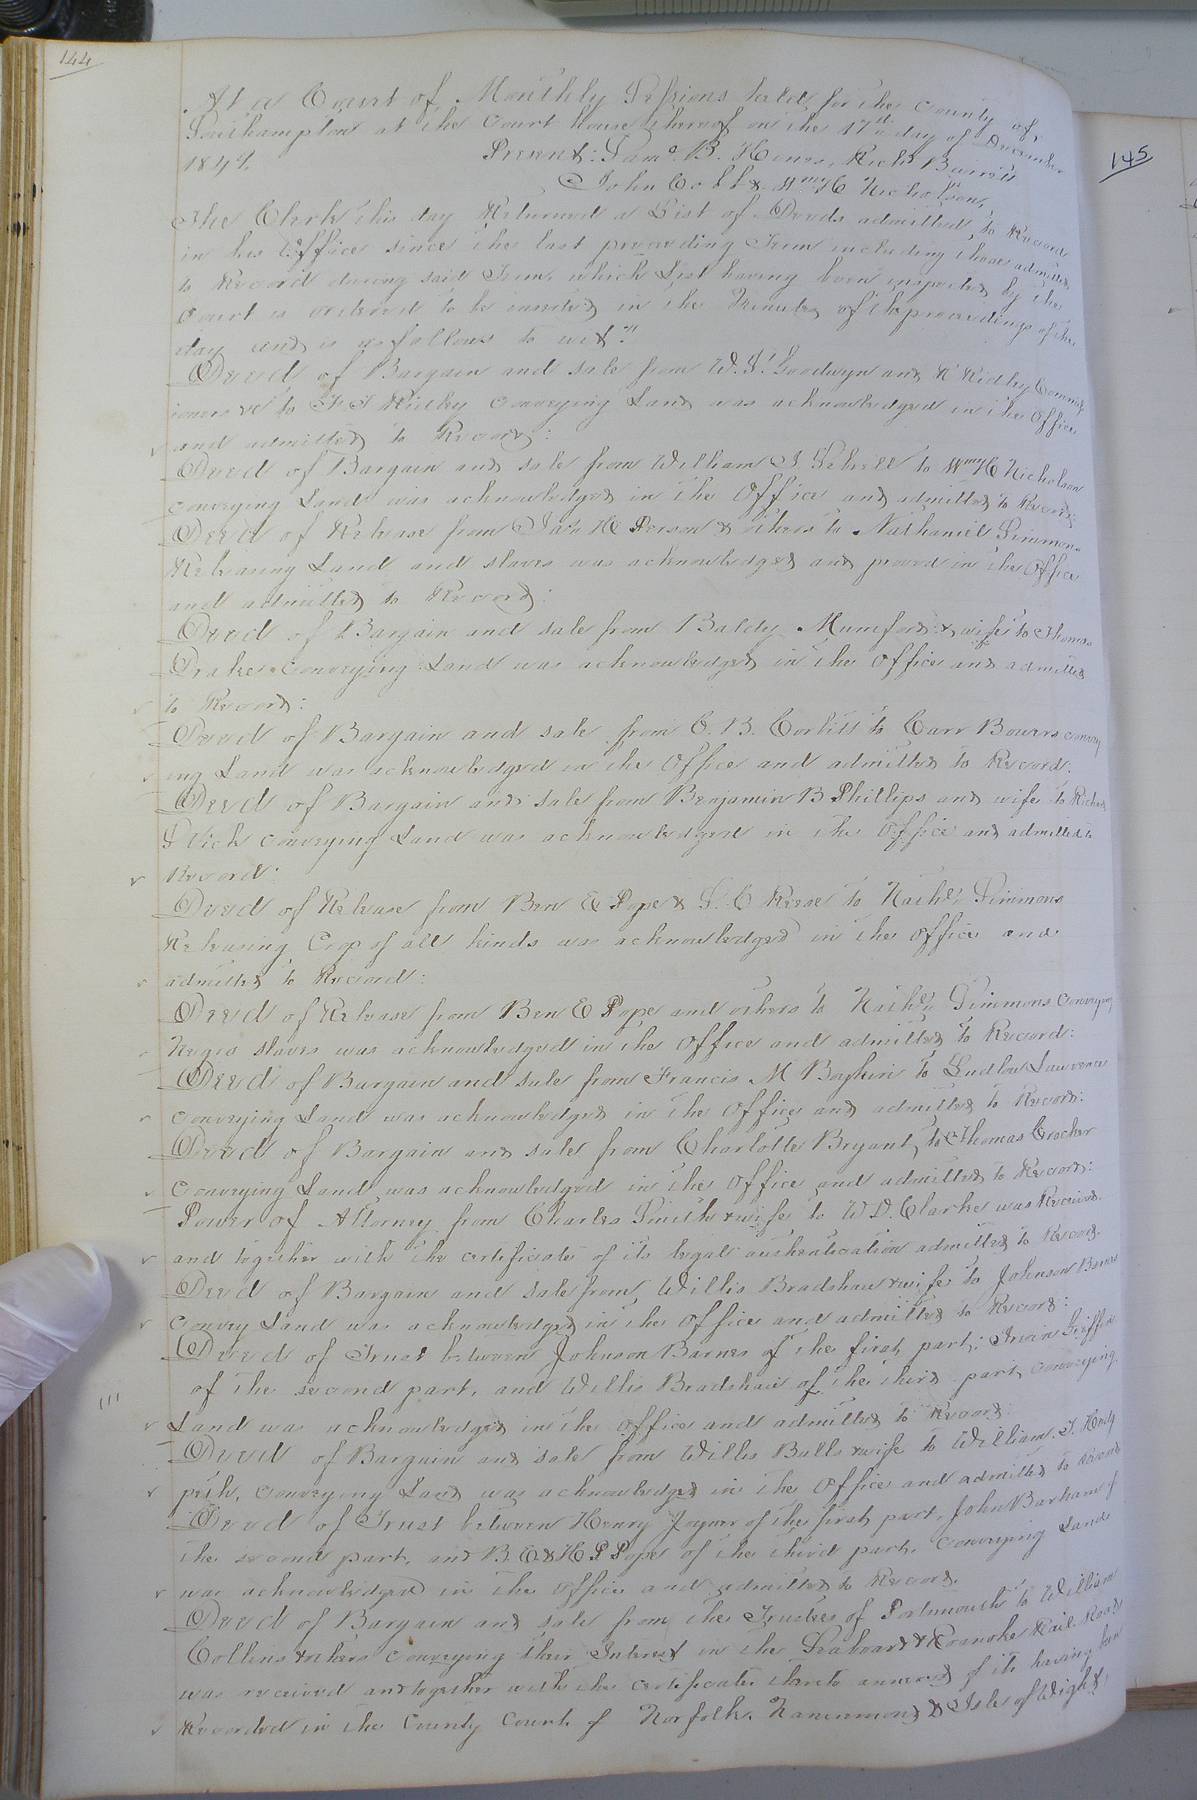 144
At a Court of Monthly Sessions held for the County of
Southampton at the Court House thereof on the 17th day of December
1849.
Present: Saml. B. Hines, Richd Barrett
John Cobb & Wm H C Nicholson,
The Clerk this day Returned a List of Deeds admitted to Record
in his Office since the last preceeding Term including those admitted
to Record during said Term, which List having been inspected by the
Court is ordered to be inserted in the Minutes of the proceedings of the
day and is as follows to wit:"
Deed of Bargain and sale from W. S. Goodwyn and R Ridley Commis
ioners &c to F T Ridley Conveying Land was acknowledged in the Office
and admitted to Record:
Deed of Bargain and sale from William J. Sebrell to Wm H C Nicholson
conveying Land was acknowledged in the Office and admitted to Record:
Deed of Release from H Person & others to Nathaniel Simmons
Releasing Land and slaves was acknowledged and proved in the Office
and admitted to Record:
Deed of Bargain and sale from Baldy Mumford & wife to Thomas
Drake Conveying Land was acknowledged in the Office and admitted
to Record:
Deed of Bargain and sale from C. B. Corbitt to Carr Bowers convey
ing Land was acknowledged in the Office and admitted to Record.
Deed of Bargain and sale from Benjamin B Phillips and wife to Richard
Vick conveying Land was acknowledged in the Office and admitted to
Record.
Deed of Release from Ben E Pope & S. C Reese to Nathl. Simmons
Releasing Crop of all kinds was acknowledged in the Office and
admitted to Record:
Deed of Release from Ben E Pope and others to Nathl. Simmons Conveying
Negro slaves was acknowledged in the Office and admitted to Record:
Deed of Bargain and sale from Francis M Boykin to Ludlow Lawrence
conveying Land was acknowledged in the Office and admitted to Record:
Deed of Bargain and sale from Charlotte Bryant to Thomas Crocker
Conveying Land was acknowledged in the Office and admitted to Record:
Power of Attorney from Charles Smith & wife to W. D. Clarke was Received
and together with the certificate of its legal authentication admitted to Record.
Deed of Bargain and sale from Willis Bradshaw & wife to Johnson Barnes
Convey Land was acknowledged in the Office and admitted to Record:
Deed of Trust between Johnson Barnes of the first part, Irvin Griffin
of the second part, and Willis Bradshaw of the third part, conveying
Land was acknowledged in the Office and admitted to Record:
Deed of Bargain and sale from Willis Balls & wife to William. J. Hedg
peth, conveying Land was acknowledged in the Office and admitted to Record
Deed of Trust between Henry Joyner of the first part, John Barham of
the second part, and B. E & H P Pope of the third part, conveying Land
was acknowledged in the Office and admitted to Record.
Deed of Bargain and sale from the Trustees of Portsmouth to William
Collins & others conveying their Interest in the Seaboard & Roanoke Rail Road
was received and together with the certificates thereto annexed of its having been
Recorded in the County Court of Norfolk, Nansemond & Isle of Wight,
145